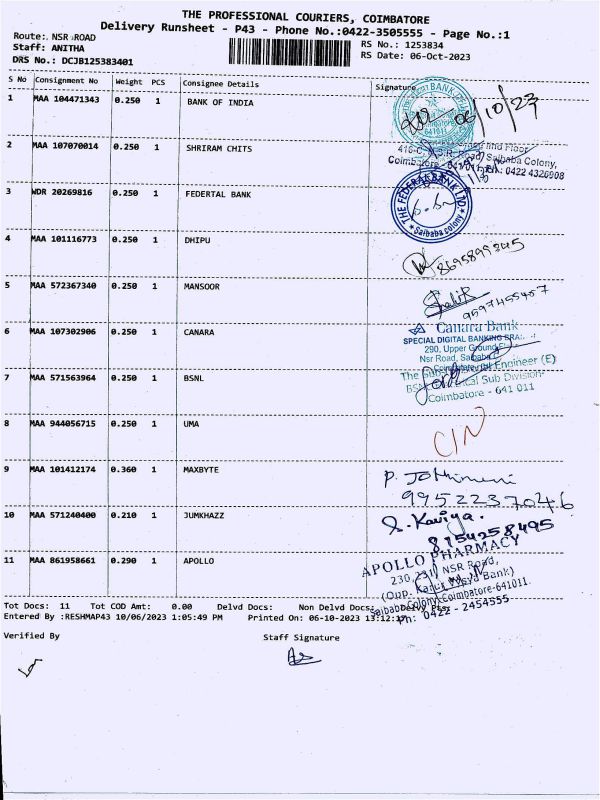 THE PROFESSIONAL COURIERS, COIMBATORE
Delivery Runsheet - P43 - Phone No.:0422-3505555 - Page No.:1
Route: NSR ROAD
RS No.: 1253834
Staff: ANITHA
RS Date: 06-Oct-2023
DRS No.: DCJB125383401
S No Consignment No Weight PCS Consignee Details Signature
1 MAA 104471343 0.250 1 BANK OF INDIA
06/10/23
641011
2 MAA 107070014 0.250 1 SHRIRAM CHITS
Floor
Saibaba Colony,
Ph: 0422 4326908
3 WDR 20269816 0.250 1 FEDERTAL BANK
THE FEDERAL BANK LTD
Saibaba colony
4 MAA 101116773 0.250 1 DHIPU
8695899345
5 MAA 572367340 0.250 1 MANSOOR
9597455457
6 MAA 107302906 0.250 1 CANARA
Canara Bank
SPECIAL DIGITAL BANKING
290, Upper Ground
Nsr Road, Saibaba
7 MAA 571563964 0.250 1 BSNL
The Engineer (E)
BSNL Sub Division
Coimbatore - 641 011
8 MAA 944056715 0.250 1 UMA
CIN
9 MAA 101412174 0.360 1 MAXBYTE
P. Jothimani
9952237046
10 MAA 571240400 0.210 1 JUMKHAZZ
S. Kaviya.
8154258495
11 MAA 861958661 0.290 1 APOLLO
APOLLO PHARMACY
230,231, NSR Road,
(Opp. Karur Vysya Bank)
Saibaba Colony, Coimbatore-641011.
Ph: 0422 - 2454555
Tot Docs: 11 Tot COD Amt: 0.00 Delvd Docs: Non Delvd Docs:
Entered By :RESHMAP43 10/06/2023 1:05:49 PM Printed On: 06-10-2023 13:12:
Verified By Staff Signature